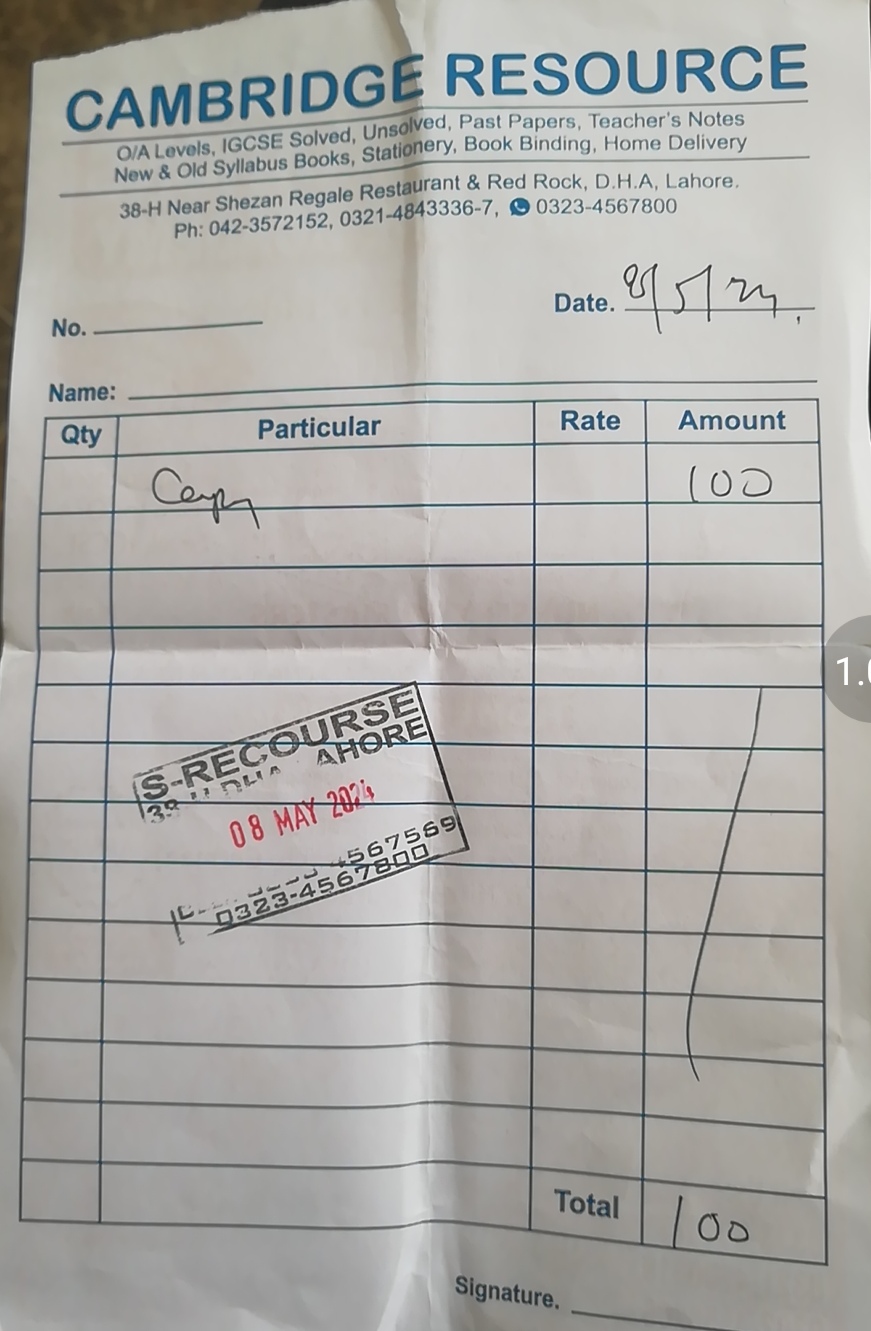 CAMBRIDGE RESOURCE
O/A Levels, IGCSE Solved, Unsolved, Past Papers, Teacher's Notes
New & Old Syllabus Books, Stationery, Book Binding, Home Delivery
38-H Near Shezan Regale Restaurant & Red Rock, D.H.A, Lahore.
Ph: 042-3572152, 0321-4843336-7, 0323-4567800
No. Date. 8/5/24
Name:
Qty Particular Rate Amount
100
S-RECOURSE
AHORE
08 MAY 2024
4567569
0323-4567800
Total 100
Signature.